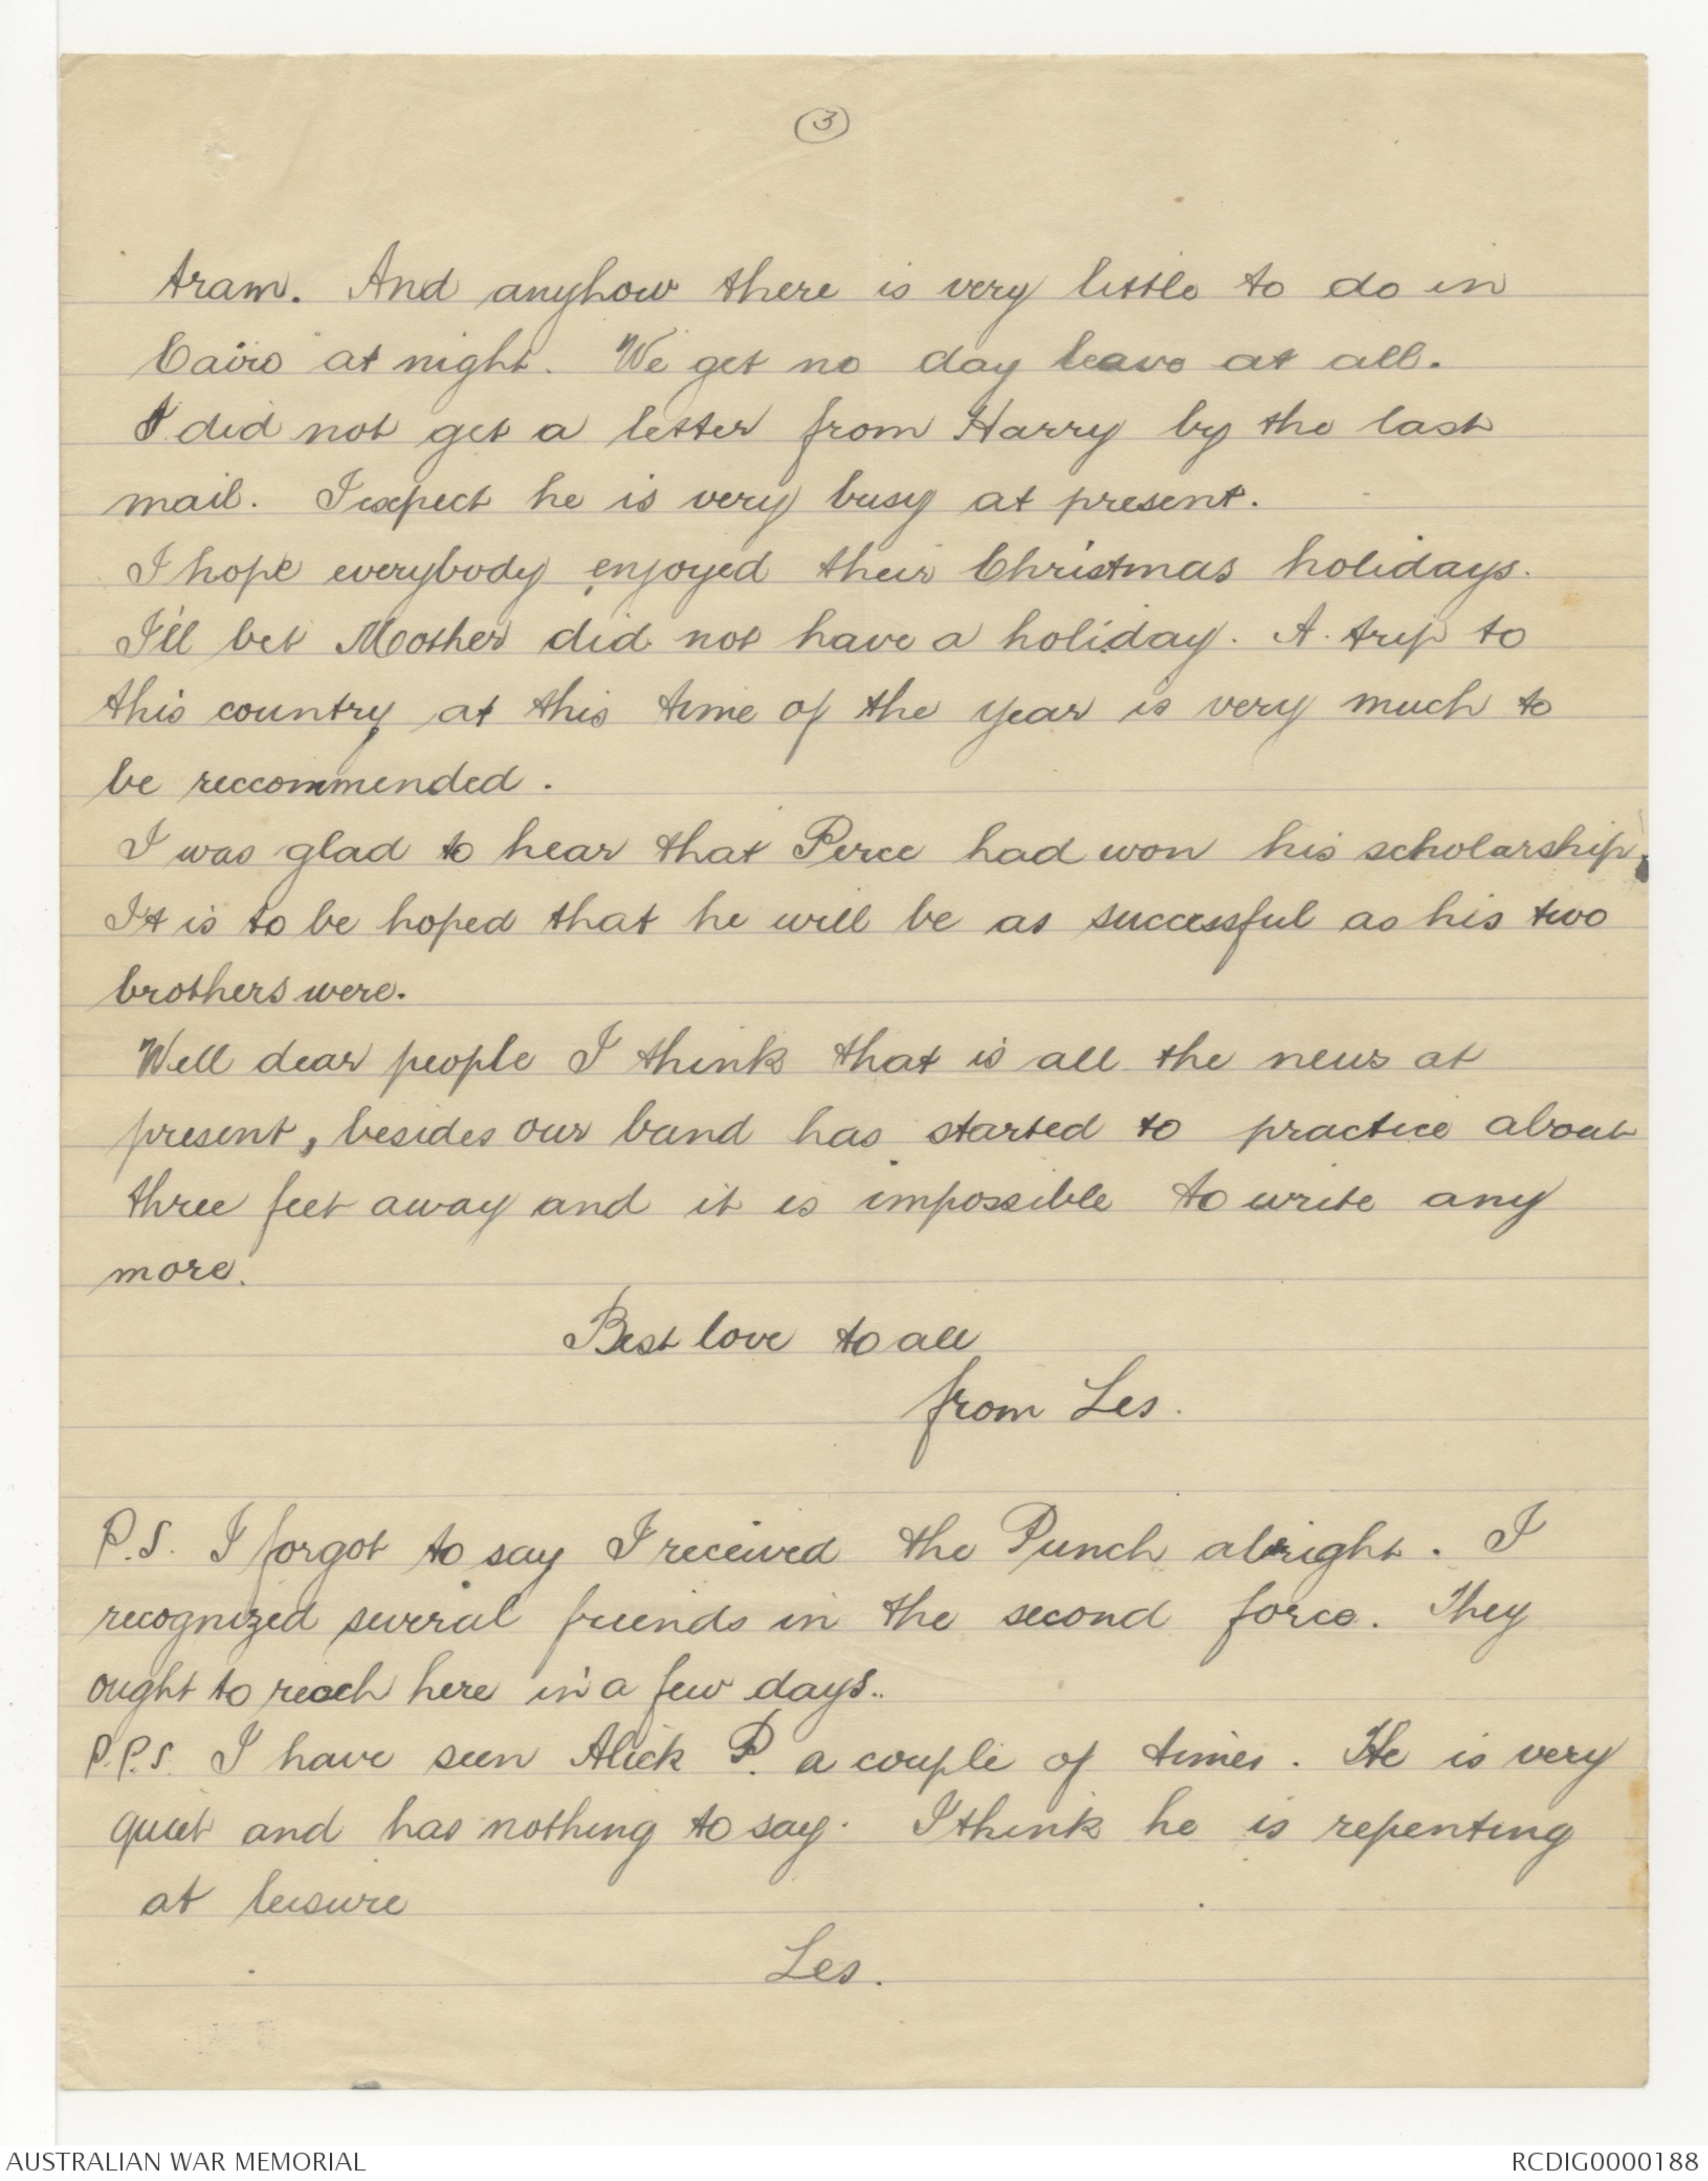 3
tram. And anyhow there is very little to do in
Cairo at night. We get no day leave at all.
I did not get a letter from Harry by the last
mail. I expect he is very busy at present.
I hope everybody enjoyed their Christmas holidays.
I'll bet Mother did not have a holiday. A trip to
this country at this time of the year is very much to
be reccommended.
I was glad to hear that Perce had won his scholarship.
It is to be hoped that he will be as successful as his two
brothers were.
Well dear people I think that is all the news at
present, besides our band has started to practice about
three feet away and it is impossible to write any
more.
Best love to all
from Les.
P.S. I forgot to say I received the Punch alright. I
recognized several friends in the second force. They
ought to reach here in a few days..
P.P.S. I have seen Alick P. a couple of times. He is very
quiet and has nothing to say. I think he is repenting
at leisure
Les.
AUSTRALIAN WAR MEMORIAL
RCDIG0000188